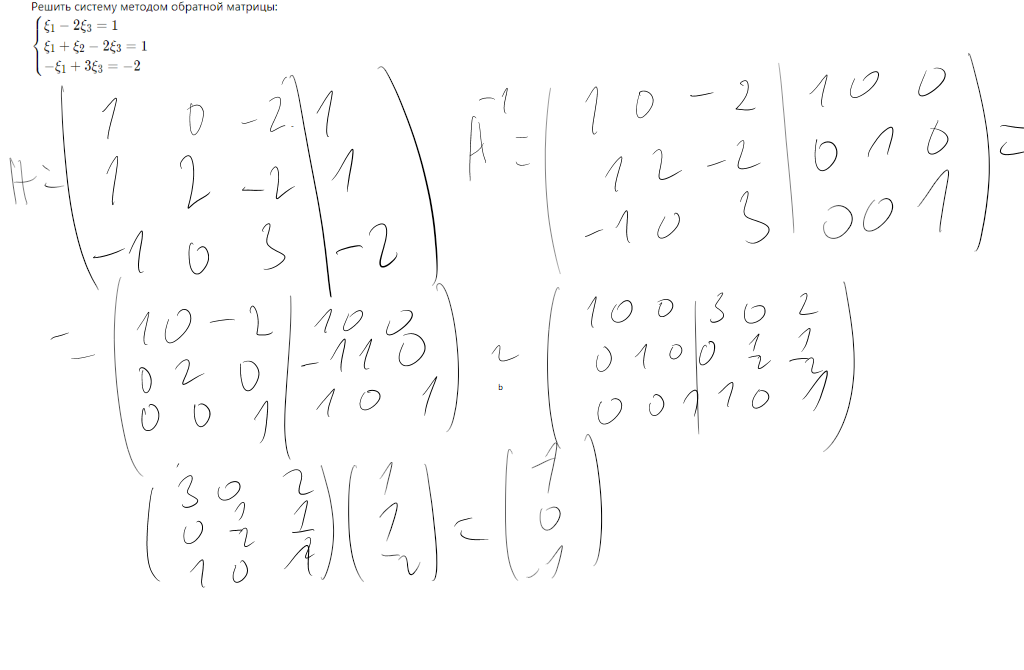 Решить систему методом обратной матрицы:
ξ₁ − 2ξ₃ = 1
ξ₁ + ξ₂ − 2ξ₃ = 1
−ξ₁ + 3ξ₃ = −2
A = ( 1 0 -2 | 1 )
1 2 -2 | 1
-1 0 3 | -2
A⁻¹ = ( 1 0 -2 | 1 0 0 ) =
1 2 -2 | 0 1 0
-1 0 3 | 0 0 1
= ( 1 0 -2 | 1 0 0 ) ~
0 2 0 | -1 1 0
0 0 1 | 1 0 1
b
( 1 0 0 | 3 0 2 )
0 1 0 | 0 1/2 1/2
0 0 1 | 1 0 1
( 3 0 2 ) ( 1 ) = ( -1 )
0 1/2 1/2 1 0
1 0 1 -2 -1